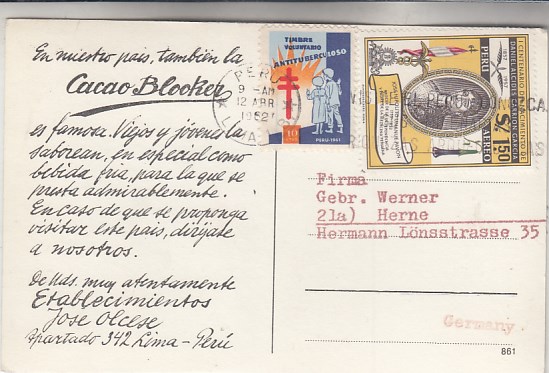 En nuestro país, también la
Cacao Blooker
es famosa. Viejos y jóvenes la
saborean, en especial como
bebida fría, para la que se
presta admirablemente.
En caso de que se proponga
visitar este país, diríjase
a nosotros.
De Uds. muy atentamente
Establecimientos
Jose Olcese
Apartado 342 Lima - Perú
TIMBRE
VOLUNTARIO
ANTITUBERCULOSO
10
PERU-1961
PERU
9 - AM
12 ABR
1962
LIMA
I CENTENARIO DEL NACIMIENTO DE
DANIEL ALCIDES CARRION GARCIA
PERU
S/. 1.50
AEREO
Firma
Gebr. Werner
21a) Herne
Hermann Lönsstrasse 35
Germany
861